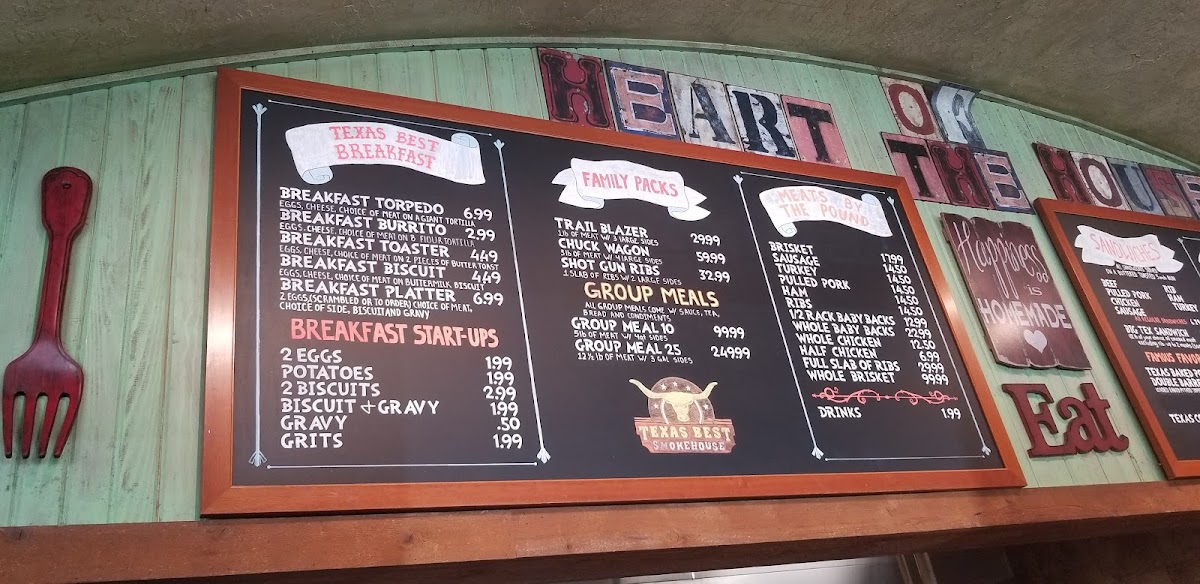 HEART OF
THE HOUSE
TEXAS BEST
BREAKFAST
BREAKFAST TORPEDO 6.99
EGGS, CHEESE, CHOICE OF MEAT ON A GIANT TORTILLA
BREAKFAST BURRITO 2.99
EGGS, CHEESE, CHOICE OF MEAT ON 8" FLOUR TORTILLA
BREAKFAST TOASTER 4.49
EGGS, CHEESE, CHOICE OF MEAT ON 2 PIECES OF BUTTER TOAST
BREAKFAST BISCUIT 4.49
EGGS, CHEESE, CHOICE OF MEAT ON BUTTERMILK BISCUIT
BREAKFAST PLATTER 6.99
2 EGGS, (SCRAMBLED OR TO ORDER) CHOICE OF MEAT,
CHOICE OF SIDE, BISCUIT AND GRAVY
BREAKFAST START-UPS
2 EGGS 1.99
POTATOES 1.99
2 BISCUITS 2.99
BISCUIT & GRAVY 1.99
GRAVY .50
GRITS 1.99
FAMILY PACKS
TRAIL BLAZER 29.99
1 lb OF MEAT W/ 3 LARGE SIDES
CHUCK WAGON 59.99
3 lb OF MEAT W/ 4 LARGE SIDES
SHOT GUN RIBS 32.99
1 SLAB OF RIBS W/ 2 LARGE SIDES
GROUP MEALS
ALL GROUP MEALS COME W/ SAUCE, TEA,
BREAD AND CONDIMENTS
GROUP MEAL 10 99.99
5 lb OF MEAT W/ 4 qt SIDES
GROUP MEAL 25 249.99
12 ½ lb OF MEAT W/ 3 GAL SIDES
TEXAS BEST
SMOKEHOUSE
MEATS BY
THE POUND
BRISKET 17.99
SAUSAGE 14.50
TURKEY 14.50
PULLED PORK 14.50
HAM 14.50
RIBS 14.50
1/2 RACK BABY BACKS 12.95
WHOLE BABY BACKS 22.99
WHOLE CHICKEN 12.50
HALF CHICKEN 6.99
FULL SLAB OF RIBS 29.99
WHOLE BRISKET 99.99
DRINKS 1.99
Happiness
is
HOMEMADE
Eat
SANDWICHES
BEEF RIB
PULLED PORK HAM
CHICKEN TURKEY
SAUSAGE
BIG TEX SANDWICH
FAMOUS
TEXAS BAKED
DOUBLE
TEXAS